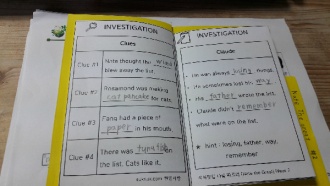 INVESTIGATION
Clues
Clue #1
Nate thought the wind
blew away the list.
Clue #2
Rosamond was making
cat pancake for cats.
Clue #3
Fang had a piece of
paper in his mouth.
Clue #4
There was
on
the list. Cats like it.
INVESTIGATION
Claude
He was always losing things.
He sometimes lost his way.
His father wrote the list.
Claude didn't remember
what were on the list.
★ hint : losing, father, way,
remember